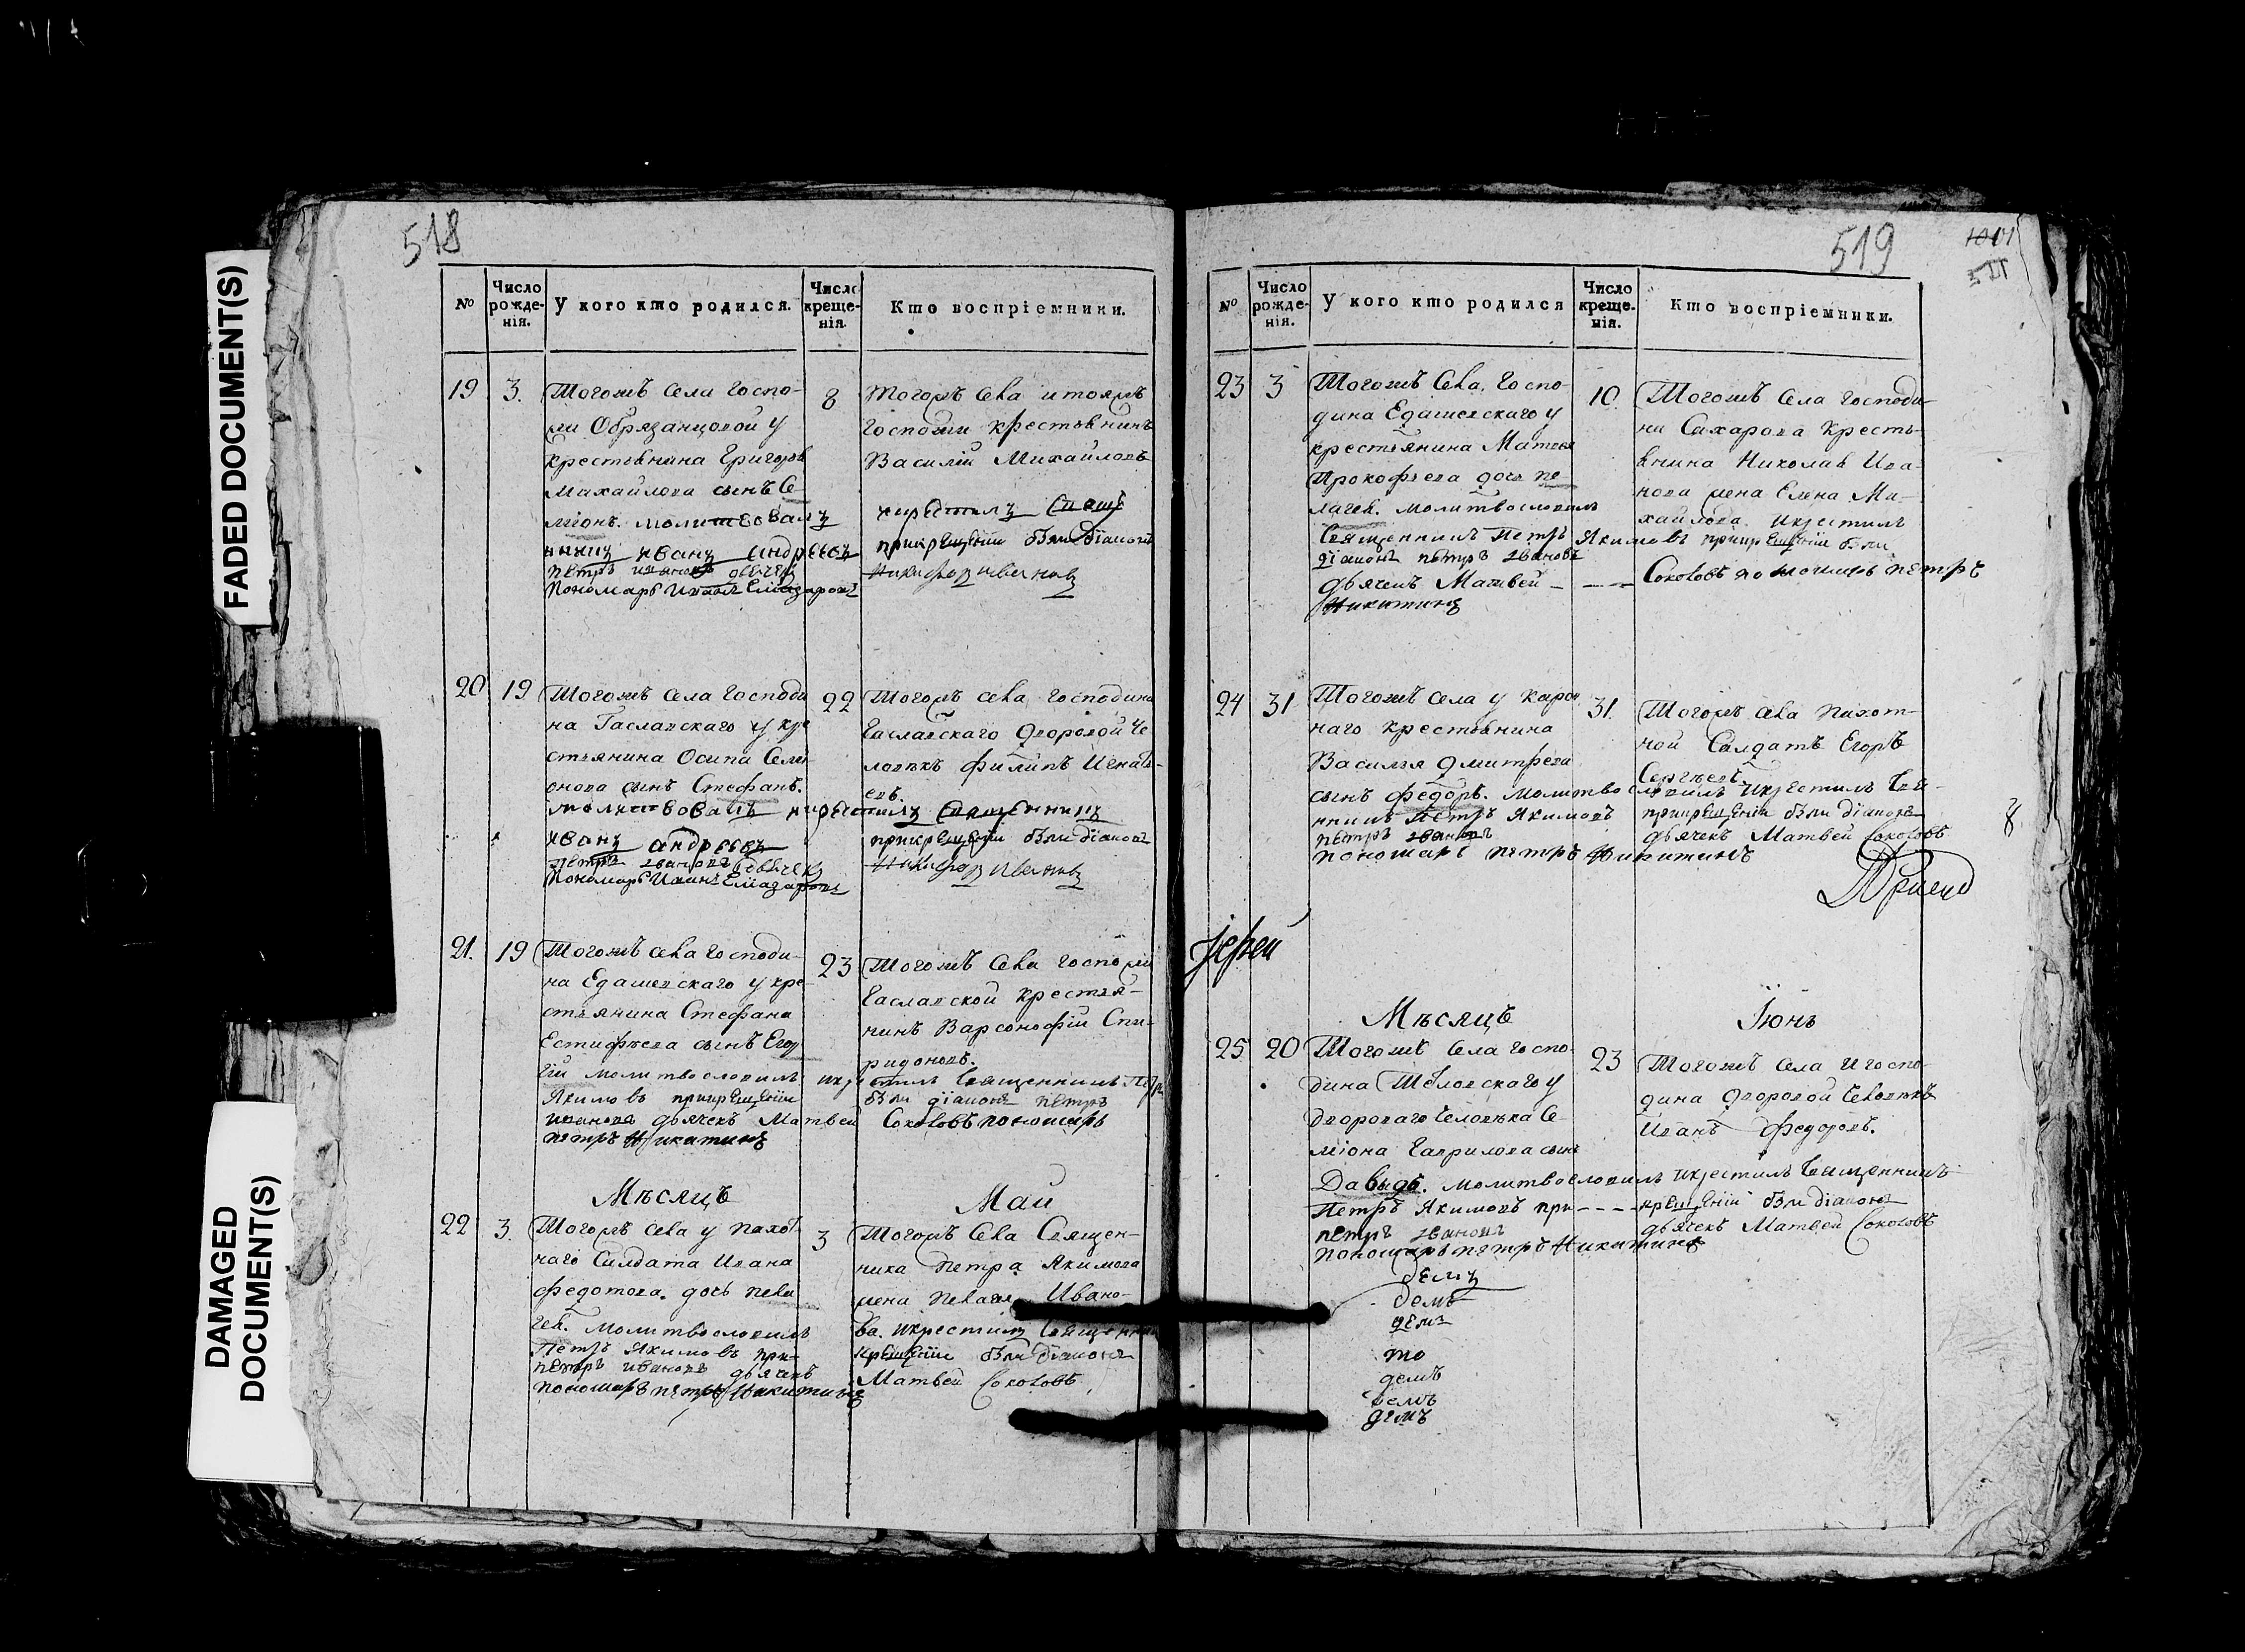 FADED DOCUMENT(S)
DAMAGED
DOCUMENT(S)
518
№
Число рожде-нія.
У кого кто родился.
Число креще-нія.
Кто воспріемники.
19 3.
Тогожъ села Госпо-
жи Обрязанцовой у
крестьянина Григорья
Михайлова сынъ Се-
міонъ. молитвовалъ
иванъ андреевъ
петръ ивановъ дьячекъ
Пономарь Иванъ Елиазаровъ
8
Тогожъ села итояжъ
Госпожи крестьянинъ
Василій Михайловъ
икрестилъ
прикрещеніи были діаконъ
Никифоръ ивановъ
20 19
Тогожъ села Господи
на Гаславскаго у кре
стьянина Осипа Семи-
онова сынъ Стефанъ.
молитвовалъ икрестилъ священникъ
иванъ андреевъ
петръ ивановъ дьячекъ
Пономарь Иванъ Елиазаровъ
22
Тогожъ села Господина
Гаславскаго дворовой Че-
ловѣкъ филипъ Игнать-
евъ.
прикрещеніи были діаконъ
Никифоръ ивановъ
21. 19
Тогожъ села Господи-
на Едашевскаго у кре-
стьянина Стефана
Естифѣева сынъ Егор
гій молитвословилъ
Якимовъ прикрещеніи
иванова дьячекъ Матвей
петръ Никитинъ
23
Тогожъ села Госпожи
Гаславской крестья-
нинъ Варсонофій Спи-
ридоновъ.
икрестилъ Священникъ Петръ
были діаконъ петръ
Соколовъ пономарь
Мѣсяцъ Май
22 3.
Тогожъ села у пахот-
наго Салдата Ивана
федотова. дочь пела
гея. молитвословилъ
Петръ Якимовъ при-
петръ ивановъ дьячекъ
пономарь петръ Никитинъ
3
Тогожъ села Священ-
ника Петра Якимова
жена пелагея Ивано-
ва. икрестилъ Священникъ
крещеніи были діаконъ
Матвей Соколовъ
519
1001
511
№
Число рожде-нія.
У кого кто родился
Число креще-нія.
Кто воспріемники.
23 3
Тогожъ села. Госпо-
дина Едашевскаго у
крестьянина Матвея
Прокофьева дочь пе
лагея. молитвословилъ
Священникъ Петръ Якимовъ прикрещеніи были
діаконъ петръ ивановъ
дьячекъ Матвей —
Никитинъ
10.
Тогожъ Села Господи-
на Сахарова кресть-
янина Николая Ива-
нова жена Елена Ми-
хайлова. икрестилъ
Соколовъ пономарь петръ
24 31
Тогожъ села у
наго крестьянина
Василья Дмитрева
сынъ федоръ. молитвословилъ икрестилъ Свя-
нникъ Петръ Якимовъ
петръ ивановъ
пономарь петръ Никитинъ
31.
Тогожъ села пахот-
ной Салдатъ Егоръ
Сергѣевъ.
прикрещеніи были діаконъ
дьячекъ Матвей Соколовъ
8
Іерей
Мѣсяцъ Іюнь
25 20
Тогожъ села Госпо
дина
двороваго человѣка Се-
міона Гаврилова сынъ
Давыдъ. молитвословилъ икрестилъ Священникъ
Петръ Якимовъ при---крещеніи были діаконъ
петръ ивановъ
пономарь петръ Никитинъ
23
Тогожъ села и госпо-
дина дворовой человѣкъ
Иванъ федоровъ.
дьячекъ Матвей Соколовъ